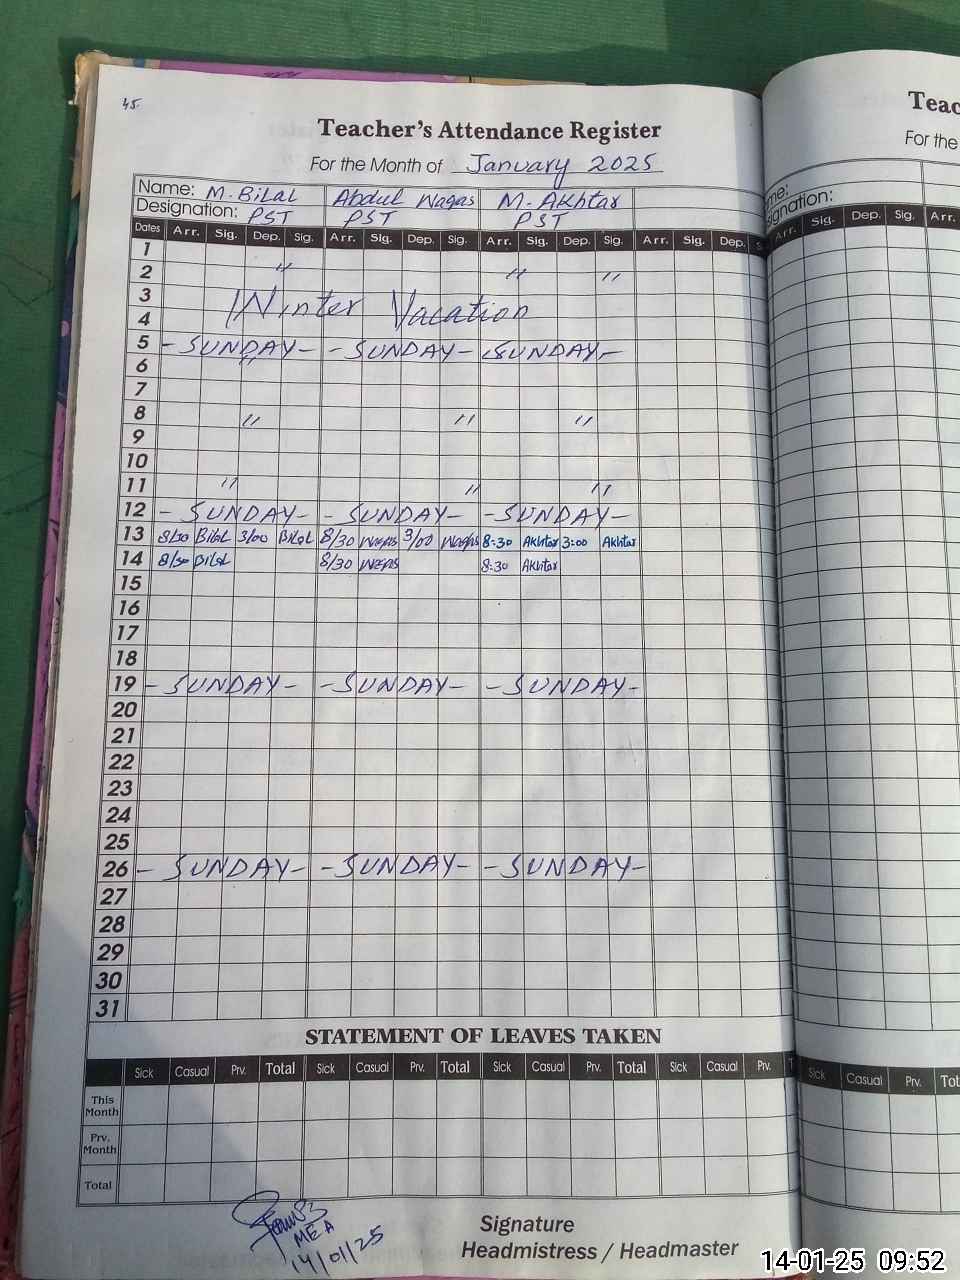 45.
Teacher's Attendance Register
For the Month of January 2025
Name: M. Bilal Abdul Waqas M. Akhtar
Designation: PST PST PST
Dates Arr. Sig. Dep. Sig. Arr. Sig. Dep. Sig. Arr. Sig. Dep. Sig. Arr. Sig. Dep. S
1
2 " " "
3 Winter Vacation
4
5 - SUNDAY - - SUNDAY - - SUNDAY -
6 "
7
8 " " "
9
10
11 " " "
12 - SUNDAY - - SUNDAY - - SUNDAY -
13 8/30 Bilal 3/00 Bilal 8/30 Waqas 3/00 Waqas 8:30 Akhtar 3:00 Akhtar
14 8/30 Bilal 8/30 Waqas 8:30 Akhtar
15
16
17
18
19 - SUNDAY - - SUNDAY - - SUNDAY -
20
21
22
23
24
25
26 - SUNDAY - - SUNDAY - - SUNDAY -
27
28
29
30
31
STATEMENT OF LEAVES TAKEN
Sick Casual Prv. Total Sick Casual Prv. Total Sick Casual Prv. Total Sick Casual Prv. T
This Month
Prv. Month
Total
MEA
14/01/25
Signature
Headmistress / Headmaster
Teac
For the
me:
signation:
Arr. Sig. Dep. Sig. Arr.
Sick Casual Prv. Tot
14-01-25 09:52